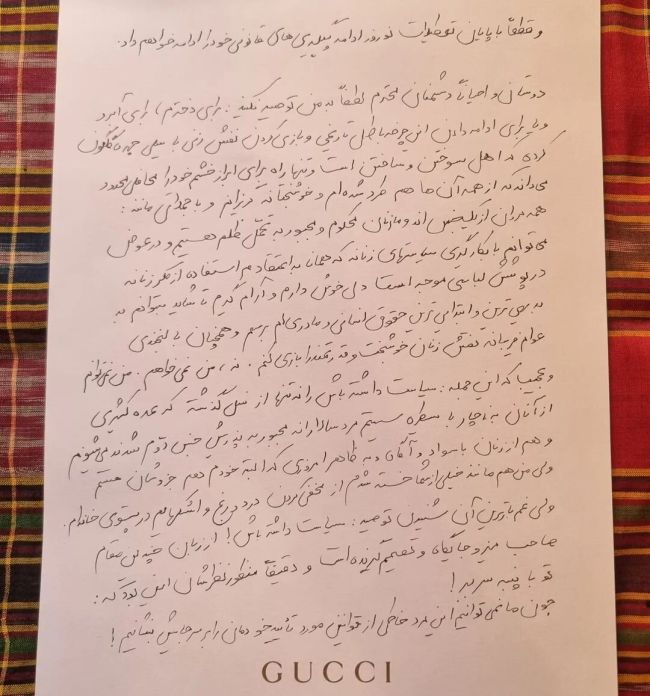 و قطعاً با پایان تعطیلات نوروز ادامه پیگیری‌های قانونی خود را ادامه خواهم داد.
دوستان و احیاناً دشمنان محترم لطفاً به من توصیه نکنید: برای دخترم، برای آبرو
و یا برای ادامه دادن این چرخه باطل تاریخی و بازی کردن نقش زنی با سیلی چهره گلگون
کرده که اهل سوختن و ساختن است و تنها راه برای ابراز خشم خود را محافلی محدود
می‌داند که از همه آن‌ها هم طرد شده‌ام و خوشبختانه گریزانم و با جملاتی مانند:
همه مردان از یک قماش‌اند و ما زنان محکوم و مجبور به تحمل ظلم هستیم و در عوض
می‌توانیم با بکارگیری سیاستهای زنانه که همانا به اعتقادم استفاده از مکر زنانه
در پوشش لباسی موجه است دلی خوش دارم و آرام گیرم تا شاید بتوانم به
بدیهی‌ترین و ابتدایی‌ترین حقوق انسانی و مادری‌ام برسم و همچنان با لبخندی
عوام فریبانه نقش زنان خوشبخت و قدرتمند را بازی کنم. نه، من نمی‌خواهم. من نمی‌توانم
و عجیب که این جمله: سیاست داشته باش را نه تنها از نسل گذشته که عده کثیری
از آنان به ناچار با سیطره سیستم مردسالارانه مجبور به پذیرش جنس دوم شدند می‌شنوم
و هم از زنان با سواد و آگاه و به ظاهر امروزی که البته خودم هم جزوشان هستم
ولی من هم مانند خیلی از شما خسته شدم از مخفی کردن درد و رنج و اشکهایم در پستوی خانه‌ام.
ولی غم‌بارترین آن شنیدن توصیه: سیاست داشته باش! از زبان چندین مقام
صاحب میز و جایگاه و تصمیم گیرنده است و دقیقاً منظور نظرشان این بود که:
تو با پنبه سر ببر!
چون ما نمی‌توانیم این مرد خاطی از قوانین مورد تأیید خودمان را بر سر جایش بنشانیم!
GUCCI